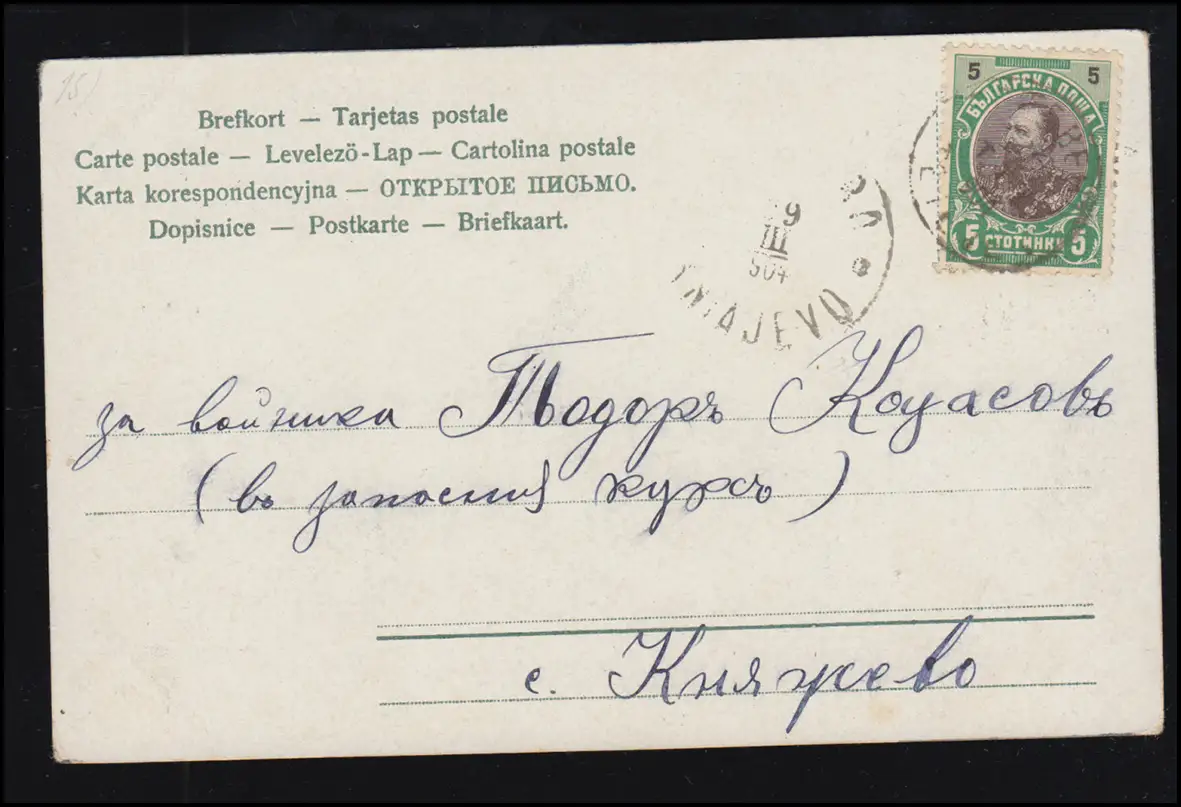 15)
Brefkort — Tarjetas postale
Carte postale — Levelezö-Lap — Cartolina postale
Karta korespondencyjna — ОТКРЫТОЕ ПИСЬМО.
Dopisnice — Postkarte — Briefkaart.
5 5
БЪЛГАРСКА ПОЩА
5 СТОТИНКИ 5
9
III
904
KNIAJEVO
за войника Тодоръ Коцасовъ
(въ запасния курсъ)
с. Княжево